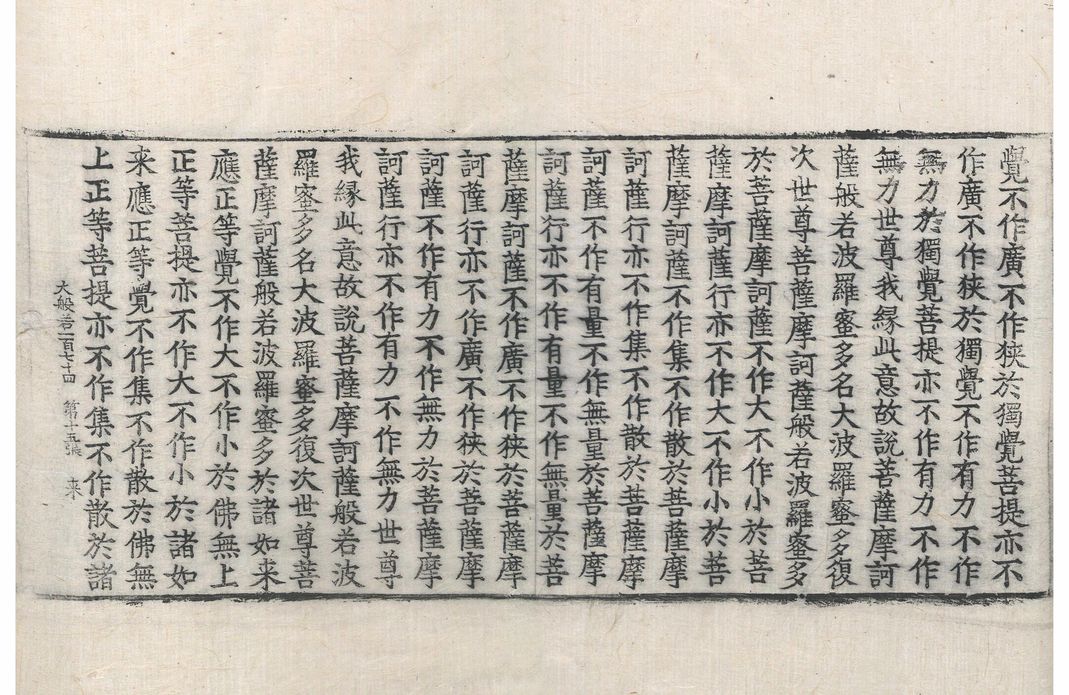 覺不作廣不作狭於獨覺菩提亦不
作廣不作狭於獨覺不作有力不作
無力於獨覺菩提亦不作有力不作
無力世尊我緣此意故說菩薩摩訶
薩般若波羅蜜多名大波羅蜜多復
次世尊菩薩摩訶薩般若波羅蜜多
於菩薩摩訶薩不作大不作小於菩
薩摩訶薩行亦不作大不作小於菩
薩摩訶薩不作集不作散於菩薩摩
訶薩行亦不作集不作散於菩薩摩
訶薩不作有量不作無量於菩薩摩
訶薩行亦不作有量不作無量於菩
薩摩訶薩不作廣不作狭於菩薩摩
訶薩行亦不作廣不作狭於菩薩摩
訶薩不作有力不作無力於菩薩摩
訶薩行亦不作有力不作無力世尊
我緣此意故說菩薩摩訶薩般若波
羅蜜多名大波羅蜜多復次世尊菩
薩摩訶薩般若波羅蜜多於諸如来
應正等覺不作大不作小於佛無上
正等菩提亦不作大不作小於諸如
来應正等覺不作集不作散於佛無
上正等菩提亦不作集不作散於諸
大般若一百七十四 第十五張 来